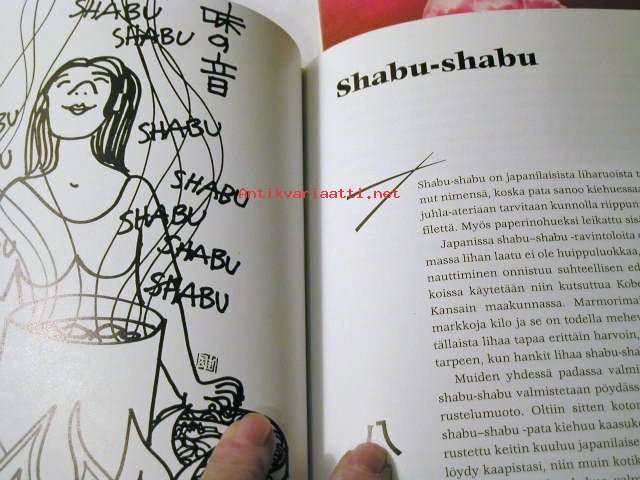 SHABU
SHABU
味の音
SHABU
SHABU
SHABU
SHABU
SHABU
Antikvariaatti.net
shabu-shabu
Shabu-shabu on japanilaisista liharuoista t
nut nimensä, koska pata sanoo kiehuessa
juhla-ateriaan tarvitaan kunnolla riippun
filettä. Myös paperinohueksi leikattu sis
Japanissa shabu–shabu -ravintoloita o
massa lihan laatu ei ole huippuluokkaa,
nauttiminen onnistuu suhteellisen ed
koissa käytetään niin kutsuttua Kob
Kansain maakunnassa. Marmorima
markkoja kilo ja se on todella mehev
tällaista lihaa tapaa erittäin harvoin,
tarpeen, kun hankit lihaa shabu-sha
Muiden yhdessä padassa valmi
shabu-shabu valmistetaan pöydäss
rustelumuoto. Oltiin sitten koto
shabu–shabu -pata kiehuu kaasuk
rustettu keitin kuuluu japanilaise
löydy kaapistasi, niin muin kotik